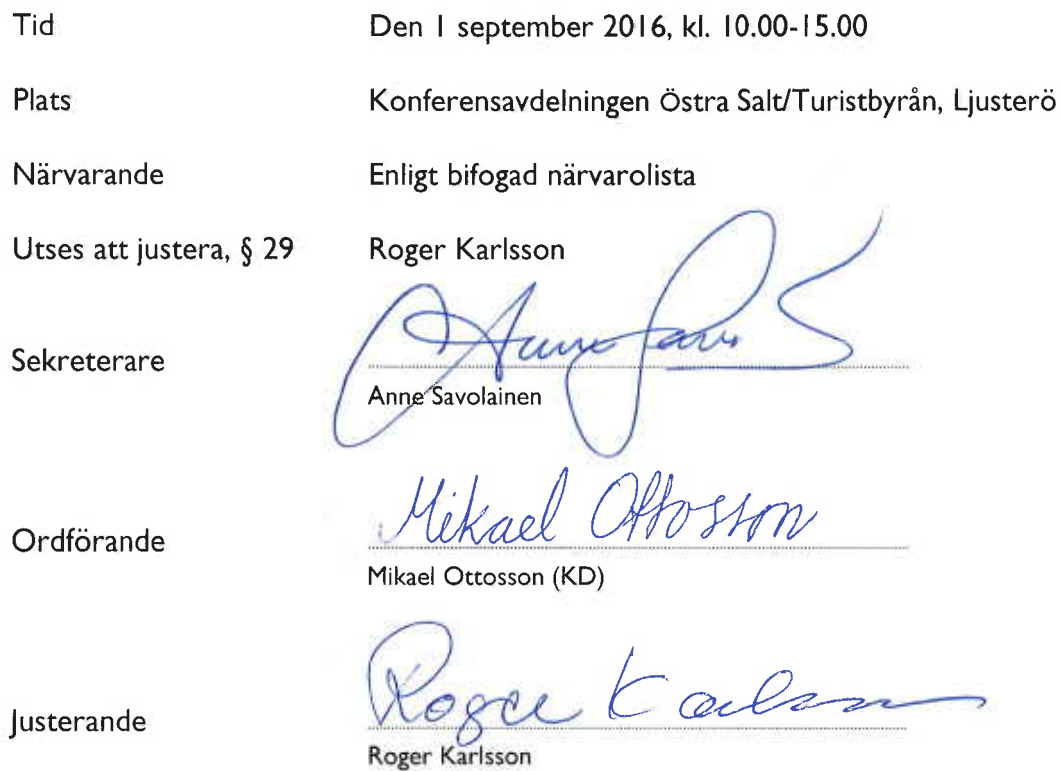 Tid Den 1 september 2016, kl. 10.00-15.00
Plats Konferensavdelningen Östra Salt/Turistbyrån, Ljusterö
Närvarande Enligt bifogad närvarolista
Utses att justera, § 29 Roger Karlsson
Sekreterare
Anne Savolainen
Mikael Ottosson
Ordförande
Mikael Ottosson (KD)
Roger Karlsson
Justerande
Roger Karlsson